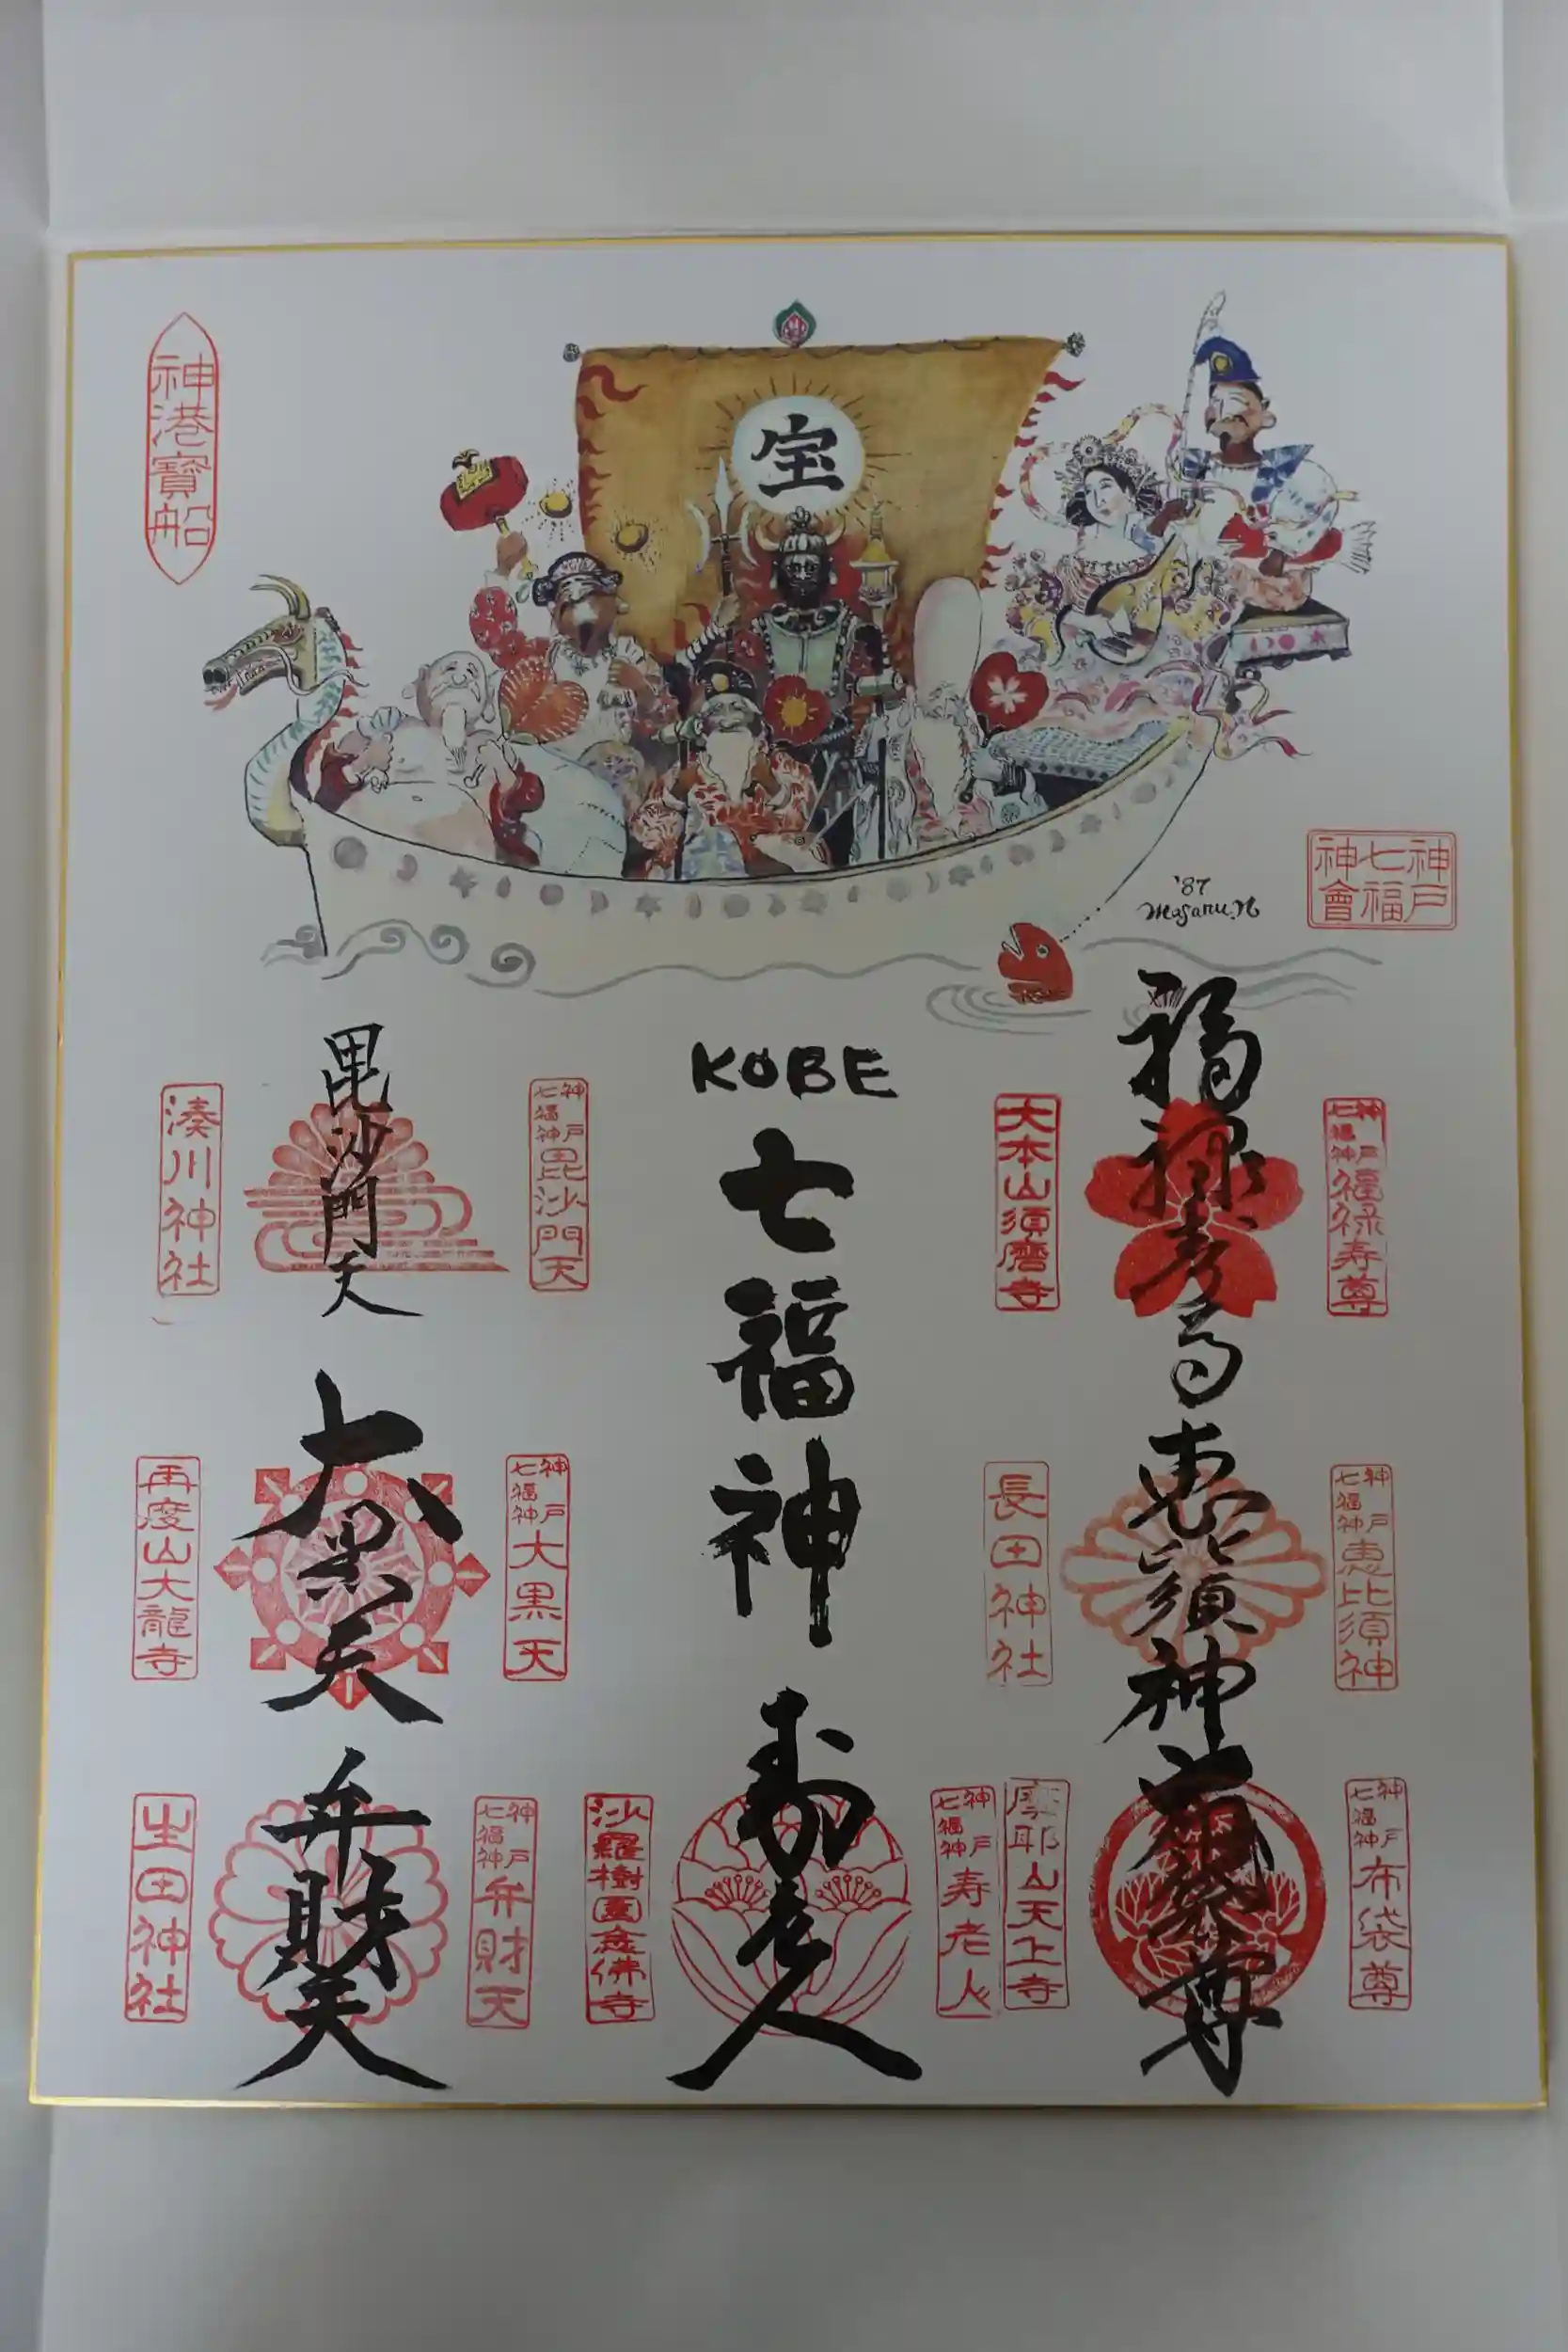 神港寶船
宝
'87
Masaru.N
神戸
七福
神會
KOBE
七福神
神戸七福神 福禄寿尊
福禄寿尊
大本山須磨寺
神戸七福神 恵比須神
恵比須神
長田神社
神戸七福神 布袋尊
布袋尊
摩耶山天上寺
神戸七福神 寿老人
寿老人
沙羅樹園念佛寺
神戸七福神 毘沙門天
毘沙門天
湊川神社
神戸七福神 大黒天
大黒天
再度山大龍寺
神戸七福神 弁財天
弁財天
生田神社